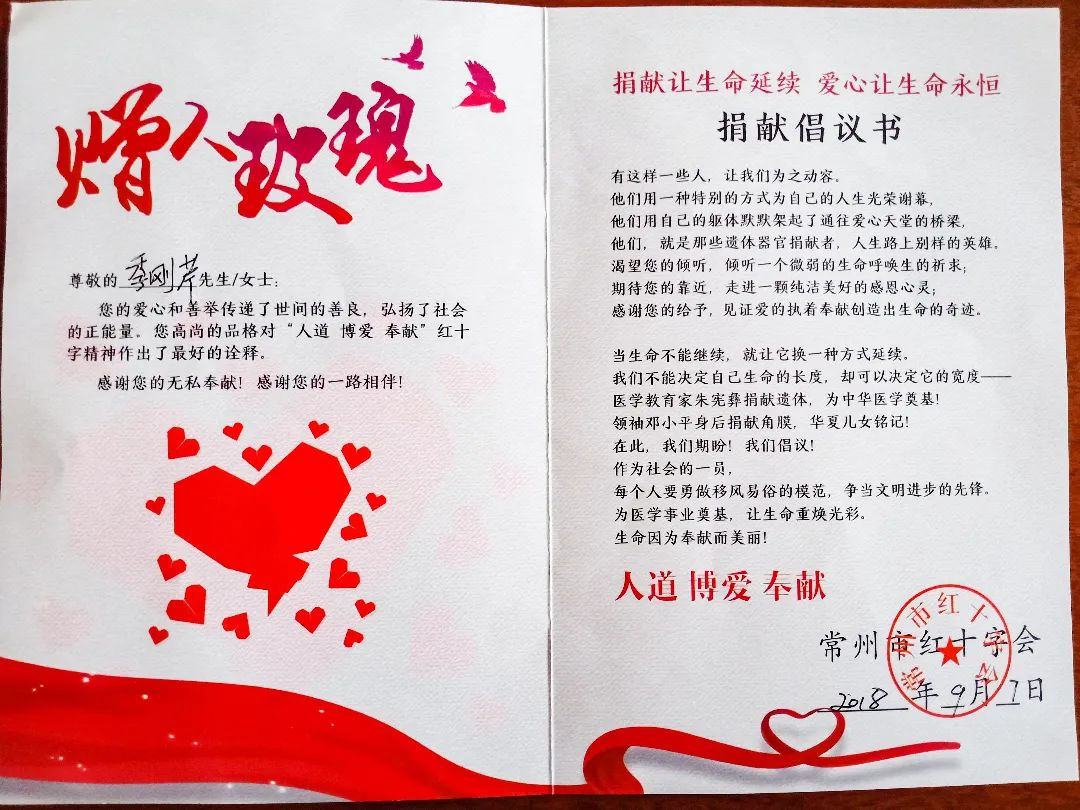 赠人玫瑰
尊敬的 季刚芹 先生/女士:
您的爱心和善举传递了世间的善良，弘扬了社会
的正能量。您高尚的品格对“人道 博爱 奉献”红十
字精神作出了最好的诠释。
感谢您的无私奉献! 感谢您的一路相伴!
捐献让生命延续 爱心让生命永恒
捐献倡议书
有这样一些人，让我们为之动容。
他们用一种特别的方式为自己的人生光荣谢幕，
他们用自己的躯体默默架起了通往爱心天堂的桥梁，
他们，就是那些遗体器官捐献者，人生路上别样的英雄。
渴望您的倾听，倾听一个微弱的生命呼唤生的祈求;
期待您的靠近，走进一颗纯洁美好的感恩心灵;
感谢您的给予，见证爱的执着奉献创造出生命的奇迹。
当生命不能继续，就让它换一种方式延续。
我们不能决定自己生命的长度，却可以决定它的宽度——
医学教育家朱宪彝捐献遗体，为中华医学奠基!
领袖邓小平身后捐献角膜，华夏儿女铭记!
在此，我们期盼! 我们倡议!
作为社会的一员，
每个人要勇做移风易俗的模范，争当文明进步的先锋。
为医学事业奠基，让生命重焕光彩。
生命因为奉献而美丽!
人道 博爱 奉献
常州市红十字会
常州市红十字会
2018 年 9 月 1 日